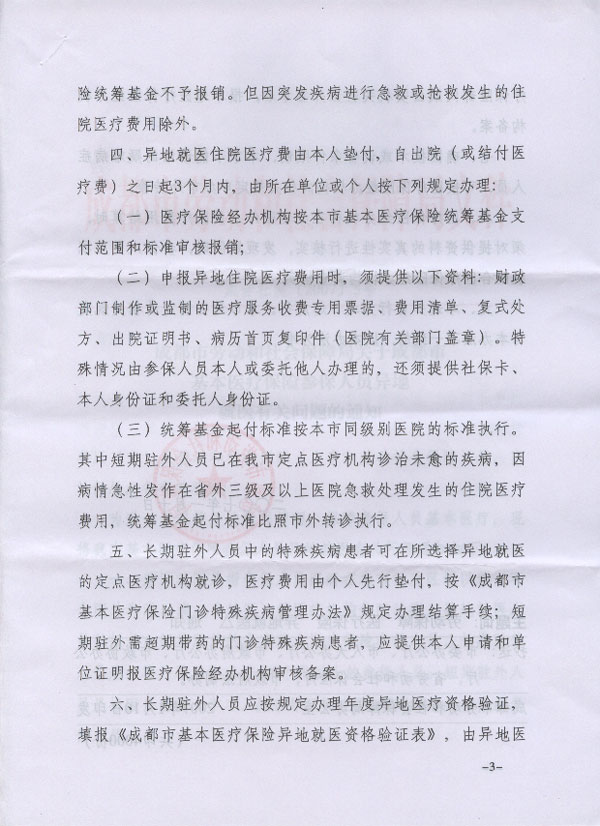 险统筹基金不予报销。但因突发疾病进行急救或抢救发生的住
院医疗费用除外。
四、异地就医住院医疗费由本人垫付，自出院（或结付医
疗费）之日起3个月内，由所在单位或个人按下列规定办理：
（一）医疗保险经办机构按本市基本医疗保险统筹基金支
付范围和标准审核报销；
（二）申报异地住院医疗费用时，须提供以下资料：财政
部门制作或监制的医疗服务收费专用票据、费用清单、复式处
方、出院证明书、病历首页复印件（医院有关部门盖章）。特
殊情况由参保人员本人或委托他人办理的，还须提供社保卡、
本人身份证和委托人身份证。
（三）统筹基金起付标准按本市同级别医院的标准执行。
其中短期驻外人员已在我市定点医疗机构诊治未愈的疾病，因
病情急性发作在省外三级及以上医院急救处理发生的住院医疗
费用，统筹基金起付标准比照市外转诊执行。
五、长期驻外人员中的特殊疾病患者可在所选择异地就医
的定点医疗机构就诊，医疗费用由个人先行垫付，按《成都市
基本医疗保险门诊特殊疾病管理办法》规定办理结算手续；短
期驻外需超期带药的门诊特殊疾病患者，应提供本人申请和单
位证明报医疗保险经办机构审核备案。
六、长期驻外人员应按规定办理年度异地医疗资格验证，
填报《成都市基本医疗保险异地就医资格验证表》，由异地医
-3-